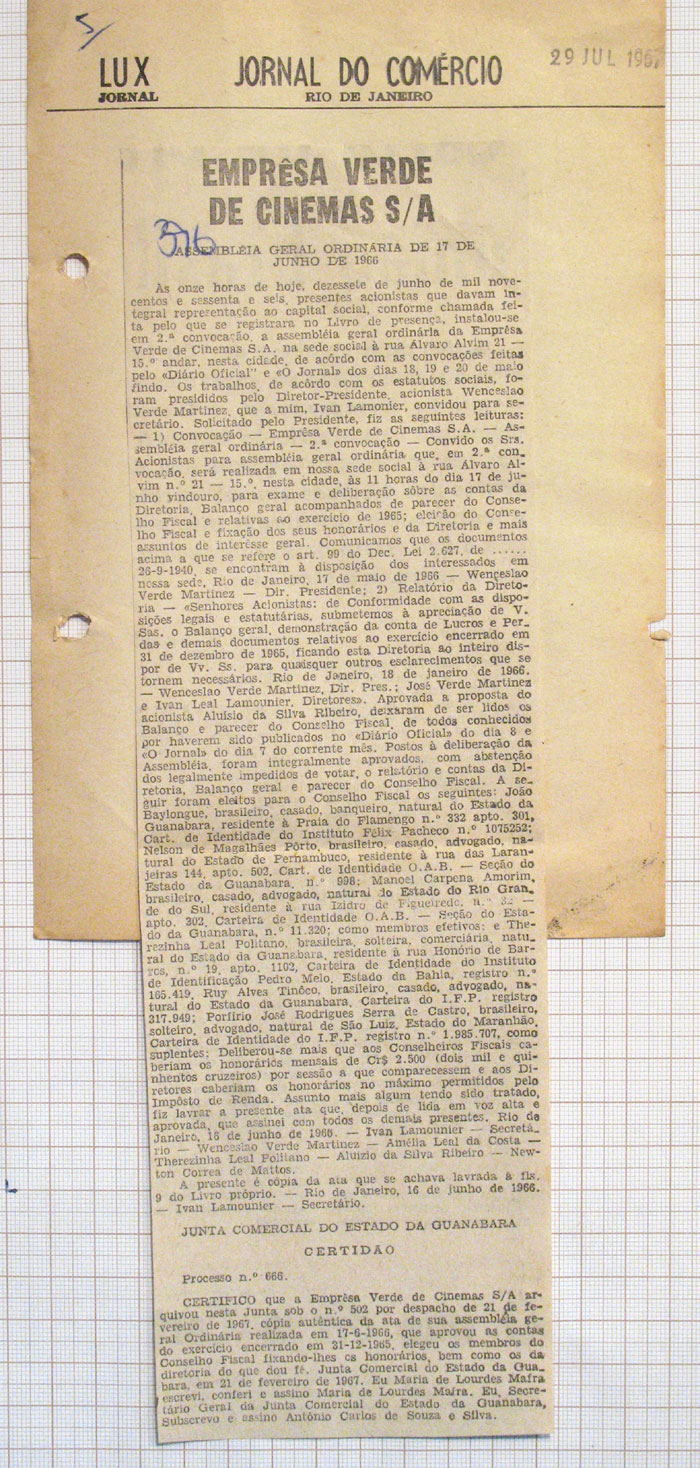 5/
LUX
JORNAL
JORNAL DO COMÉRCIO
RIO DE JANEIRO
29 JUL 1967
EMPRÊSA VERDE
DE CINEMAS S/A
376
ASSEMBLÉIA GERAL ORDINÁRIA DE 17 DE
JUNHO DE 1966
As onze horas de hoje, dezessete de junho de mil nove-
centos e sessenta e seis, presentes acionistas que davam in-
tegral representação ao capital social, conforme chamada fei-
ta pelo que se registrara no Livro de presença, instalou-se
em 2.ª convocação, a assembléia geral ordinária da Emprêsa
Verde de Cinemas S.A. na sede social à rua Álvaro Alvim 21 —
15.º andar, nesta cidade, de acôrdo com as convocações feitas
pelo «Diário Oficial" e «O Jornal» dos dias 18, 19 e 20 de maio
findo. Os trabalhos, de acôrdo com os estatutos sociais, fo-
ram presididos pelo Diretor-Presidente, acionista Wenceslao
Verde Martinez, que a mim, Ivan Lamonier, convidou para se-
cretário. Solicitado pelo Presidente, fiz as seguintes leituras:
— 1) Convocação — Emprêsa Verde de Cinemas S.A. — As-
sembléia geral ordinária — 2.ª convocação — Convido os Srs.
Acionistas para assembléia geral ordinária que, em 2.ª con-
vocação, será realizada em nossa sede social à rua Álvaro Al-
vim n.º 21 — 15.º, nesta cidade, às 11 horas do dia 17 de ju-
nho vindouro, para exame e deliberação sôbre as contas da
Diretoria, Balanço geral acompanhados de parecer do Conse-
lho Fiscal e relativas ao exercício de 1965; eleição do Conse-
lho Fiscal e fixação dos seus honorários e da Diretoria e mais
assuntos de interêsse geral. Comunicamos que os documentos
acima a que se refere o art. 99 do Dec. Lei 2.627, de ......
26-9-1940, se encontram à disposição dos interessados em
nossa sede, Rio de Janeiro, 17 de maio de 1966 — Wenceslao
Verde Martinez — Dir. Presidente; 2) Relatório da Direto-
ria — «Senhores Acionistas: de Conformidade com as dispo-
sições legais e estatutárias, submetemos à apreciação de V.
Sas. o Balanço geral, demonstração da conta de Lucros e Per-
das e demais documentos relativos ao exercício encerrado em
31 de dezembro de 1965, ficando esta Diretoria ao inteiro dis-
por de Vv. Ss. para quaisquer outros esclarecimentos que se
tornem necessários. Rio de Janeiro, 18 de janeiro de 1966.
— Wenceslao Verde Martinez, Dir. Pres.; José Verde Martinez
e Ivan Leal Lamounier, Diretores». Aprovada a proposta do
acionista Aluisio da Silva Ribeiro, deixaram de ser lidos os
Balanço e parecer do Conselho Fiscal, de todos conhecidos
por haverem sido publicados no «Diário Oficial» do dia 8 e
«O Jornal» do dia 7 do corrente mês. Postos à deliberação da
Assembléia, foram integralmente aprovados, com abstenção
dos legalmente impedidos de votar, o relatório e contas da Di-
retoria, Balanço geral e parecer do Conselho Fiscal. A se-
guir foram eleitos para o Conselho Fiscal os seguintes: João
Baylongue, brasileiro, casado, banqueiro, natural do Estado da
Guanabara, residente à Praia do Flamengo n.º 332 apto. 301,
Cart. de Identidade do Instituto Félix Pacheco n.º 1075252;
Nelson de Magalhães Pôrto, brasileiro, casado, advogado, na-
tural do Estado de Pernambuco, residente à rua das Laran-
jeiras 144, apto. 502, Cart. de Identidade O.A.B. — Seção do
Estado da Guanabara, n.º 998; Manoel Carpena Amorim,
brasileiro, casado, advogado, natural do Estado do Rio Gran-
de do Sul, residente à rua Izidro de Figueiredo, n.º —
apto. 302, Carteira de Identidade O.A.B. — Seção do Esta-
do da Guanabara, n.º 11.320; como membros efetivos: e The-
rezinha Leal Politano, brasileira, solteira, comerciária, natu-
ral do Estado da Guanabara, residente à rua Honório de Bar-
ros, n.º 19, apto. 1102, Carteira de Identidade do Instituto
de Identificação Pedro Melo, Estado da Bahia, registro n.º
165.419, Ruy Alves Tinôco, brasileiro, casado, advogado, na-
tural do Estado da Guanabara, Carteira do I.F.P. registro
317.949; Porfírio José Rodrigues Serra de Castro, brasileiro,
solteiro, advogado, natural de São Luiz, Estado do Maranhão,
Carteira de Identidade do I.F.P. registro n.º 1.985.707, como
suplentes; Deliberou-se mais que aos Conselheiros Fiscais ca-
beriam os honorários mensais de Cr$ 2.500 (dois mil e qui-
nhentos cruzeiros) por sessão a que comparecessem e aos Di-
retores caberiam os honorários no máximo permitidos pelo
Impôsto de Renda. Assunto mais algum tendo sido tratado,
fiz lavrar a presente ata que, depois de lida em voz alta e
aprovada, que assinei com todos os demais presentes. Rio de
Janeiro, 16 de junho de 1966. — Ivan Lamounier — Secretá-
rio — Wenceslao Verde Martinez — Amélia Leal da Costa —
Therezinha Leal Politano — Aluizio da Silva Ribeiro — New-
ton Correa de Mattos.
A presente é cópia da ata que se achava lavrada à fls.
9 do Livro próprio. — Rio de Janeiro, 16 de junho de 1966.
— Ivan Lamounier — Secretário.
JUNTA COMERCIAL DO ESTADO DA GUANABARA
CERTIDAO
Processo n.º 666.
CERTIFICO que a Emprêsa Verde de Cinemas S/A ar-
quivou nesta Junta sob o n.º 502 por despacho de 21 de fe-
vereiro de 1967, cópia autêntica da ata de sua assembléia ge-
ral Ordinária realizada em 17-6-1966, que aprovou as contas
do exercício encerrado em 31-12-1965, elegeu os membros do
Conselho Fiscal fixando-lhes os honorários, bem como os da
diretoria do que dou fé. Junta Comercial do Estado da Gua-
bara, em 21 de fevereiro de 1967. Eu Maria de Lourdes Mafra
escrevi, conferi e assino Maria de Lourdes Mafra. Eu, Secre-
tário Geral da Junta Comercial do Estado da Guanabara,
Subscrevo e assino Antônio Carlos de Souza e Silva.